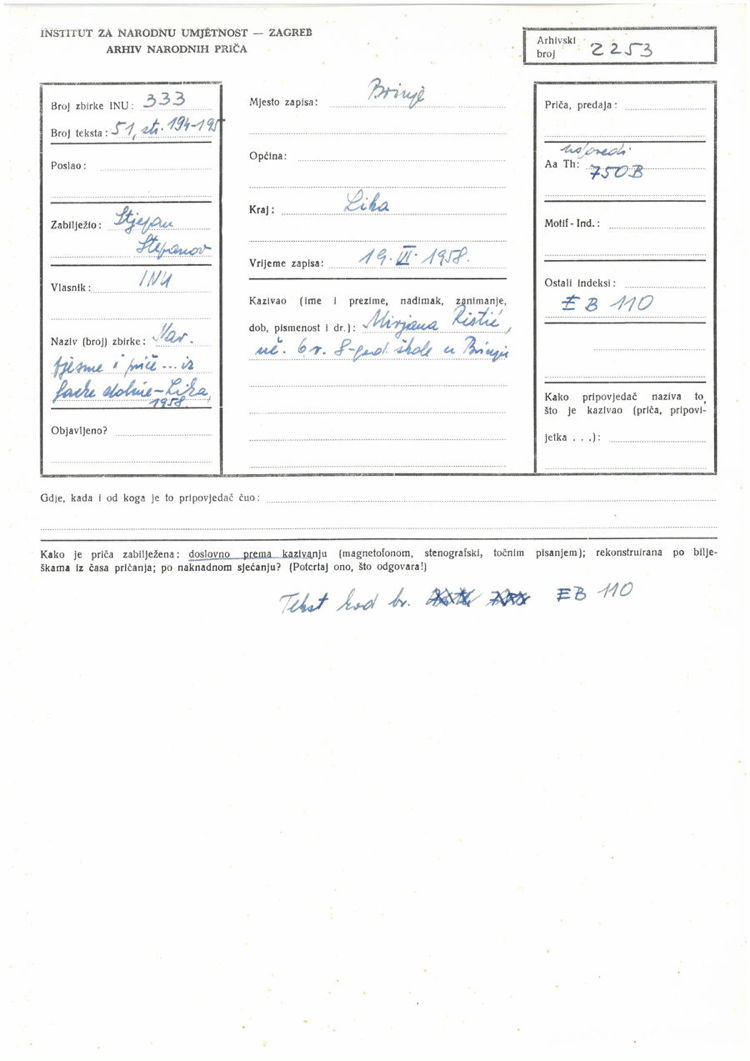 INSTITUT ZA NARODNU UMJETNOST — ZAGREB
ARHIV NARODNIH PRIČA
Arhivski broj 2253
Broj zbirke INU: 333
Broj teksta: 51, str. 194-195
Poslao:
Zabilježio: Stjepan
Stepanov
Vlasnik: INU
Naziv (broj) zbirke: Nar.
pjesme i priče ... iz
Gacke doline - Lika,
1958.
Objavljeno?
Mjesto zapisa: Brinje
Općina:
Kraj: Lika
Vrijeme zapisa: 19. VI. 1958.
Kazivao (ime i prezime, nadimak, zanimanje,
dob, pismenost i dr.): Mirjana Ristić,
uč. 6 r. 8-god. škole u Brinju
Priča, predaja:
usporedi
Aa Th: 750B
Motif - Ind.:
Ostali indeksi:
EB 110
Kako pripovjedač naziva to,
što je kazivao (priča, pripovi-
jetka . . .):
Gdje, kada i od koga je to pripovjedač čuo:
Kako je priča zabilježena: doslovno prema kazivanju (magnetofonom, stenografski, točnim pisanjem); rekonstruirana po bilje-
škama iz časa pričanja; po naknadnom sjećanju? (Potcrtaj ono, što odgovara!)
Tekst kod br. EB 110